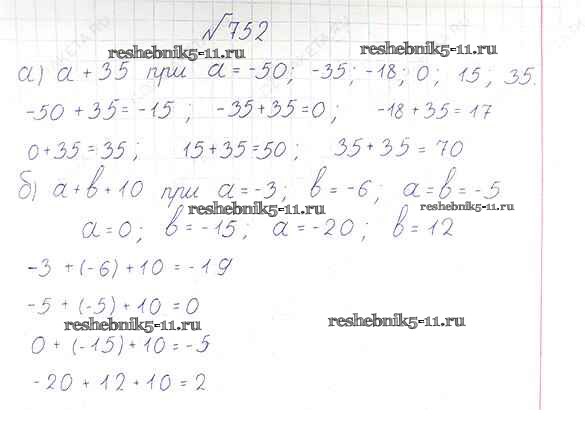 √752
reshebnik5-11.ru reshebnik5-11.ru
а) а + 35 при а = -50; -35; -18; 0; 15; 35.
-50 + 35 = -15; -35+35=0; -18+35=17
0+35=35; 15+35=50; 35+35=70
б) а+в+10 при а=-3; в=-6; а=в=-5
reshebnik5-11.ru reshebnik5-11.ru
а=0; в=-15; а=-20; в=12
-3 + (-6) + 10 = -19
-5 + (-5) + 10 = 0
reshebnik5-11.ru reshebnik5-11.ru
0 + (-15) + 10 = -5
-20 + 12 + 10 = 2